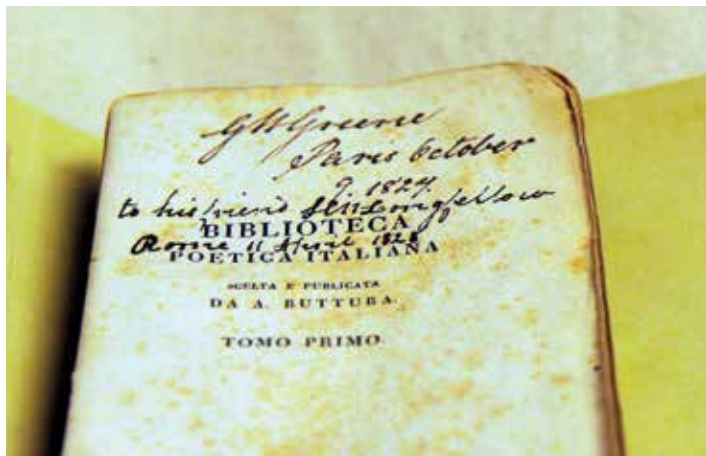 GWGreene
Paris October
9. 1827.
to his friend HWLongfellow
BIBLIOTECA
Rome 11 April 1828
POETICA ITALIANA
SCELTA E PUBLICATA
DA A. BUTTURA.
TOMO PRIMO